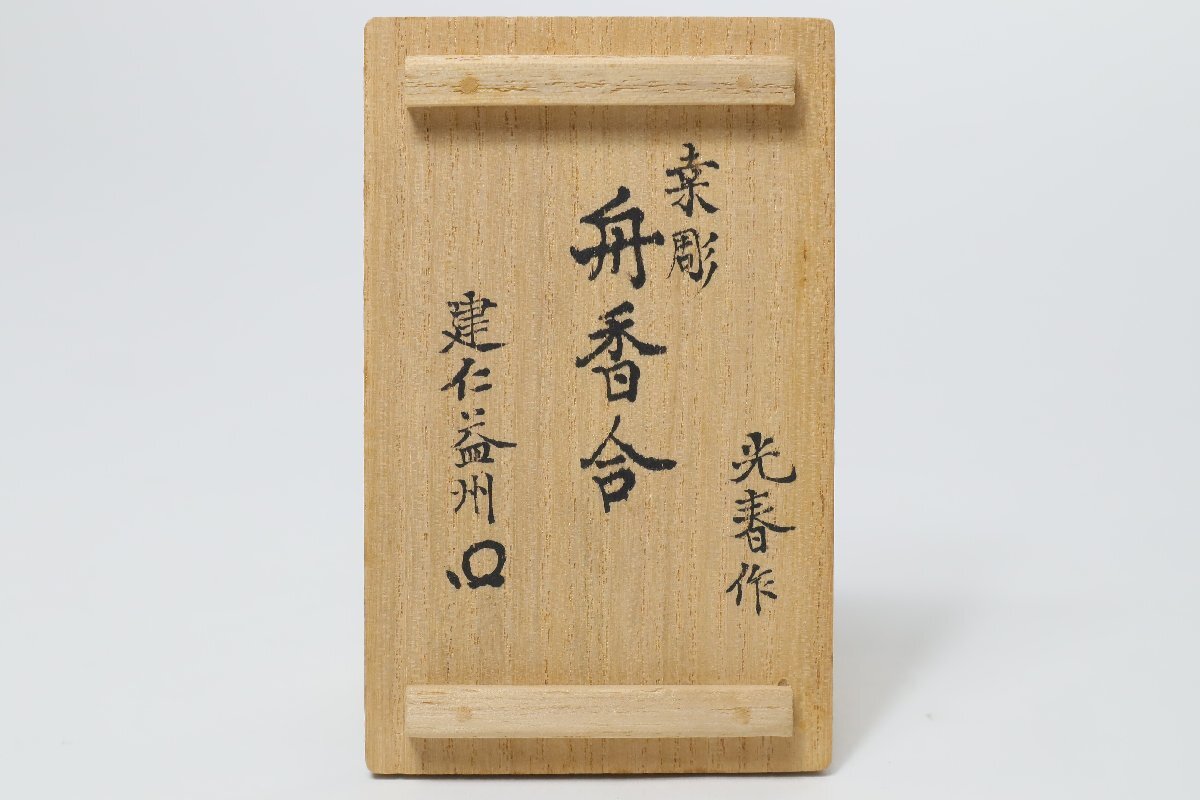 光春作
桒彫
舟香合
建仁益州